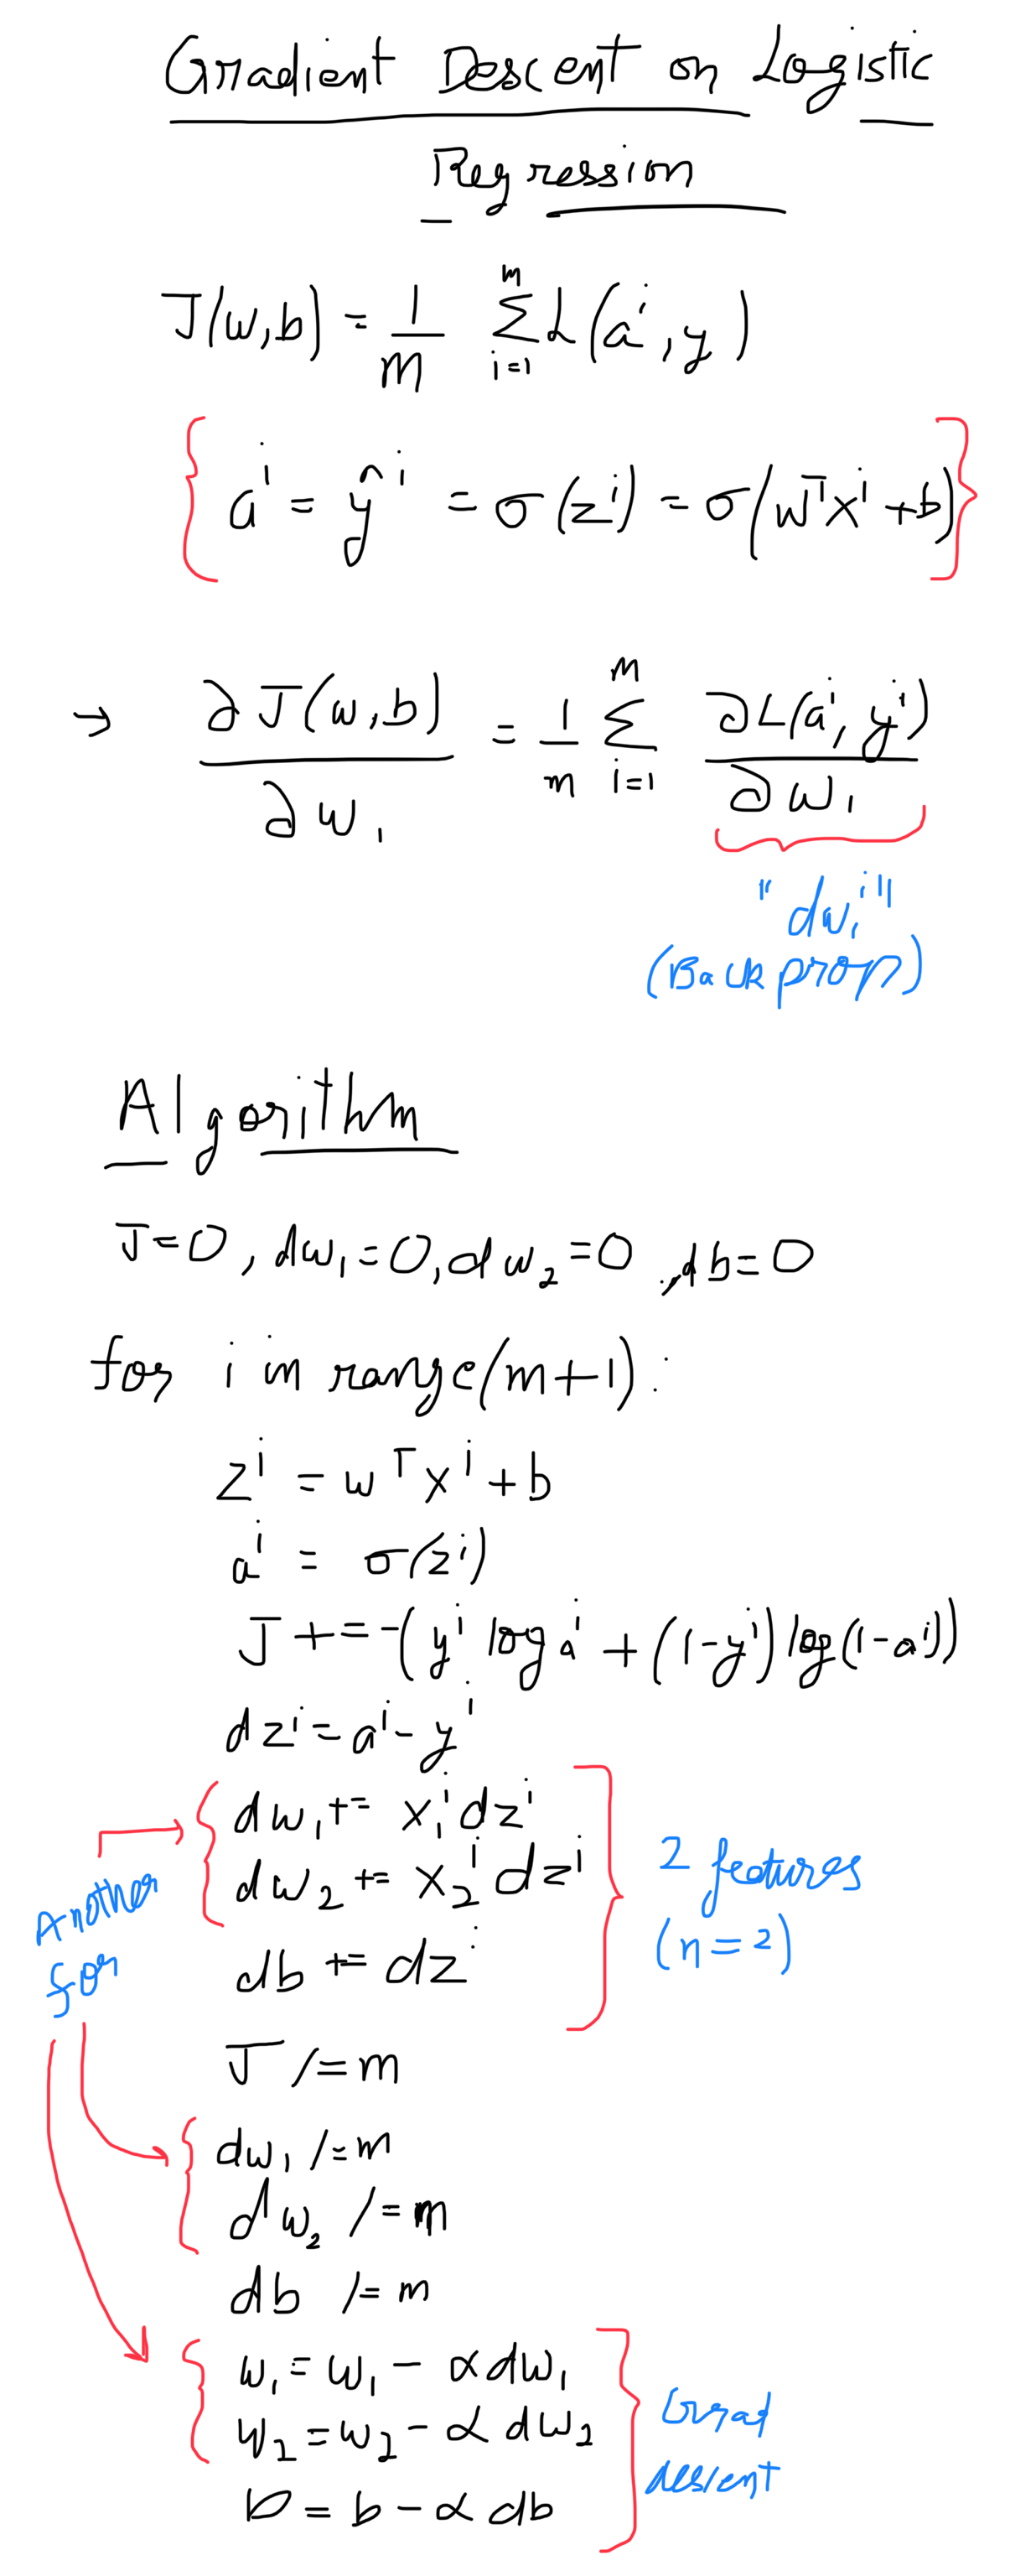 Gradient Descent on Logistic
Regression
J(w,b) = 1/m Σ_{i=1}^{m} L(a^i, y)
{ a^i = ŷ^i = σ(z^i) = σ(w^T x^i + b) }
→ ∂J(w,b)/∂w_1 = 1/m Σ_{i=1}^{m} ∂L(a^i, y^i)/∂w_1
"dw_1^i"
(Back prop)
Algorithm
J=0, dw_1=0, dw_2=0, db=0
for i in range(m+1):
z^i = w^T x^i + b
a^i = σ(z^i)
J += -(y^i log a^i + (1-y^i) log(1-a^i))
dz^i = a^i - y^i
dw_1 += x_1^i dz^i
dw_2 += x_2^i dz^i
db += dz^i
2 features
(n=2)
Another
for
J /= m
dw_1 /= m
dw_2 /= m
db /= m
w_1 = w_1 - α dw_1
w_2 = w_2 - α dw_2
b = b - α db
Grad
descent